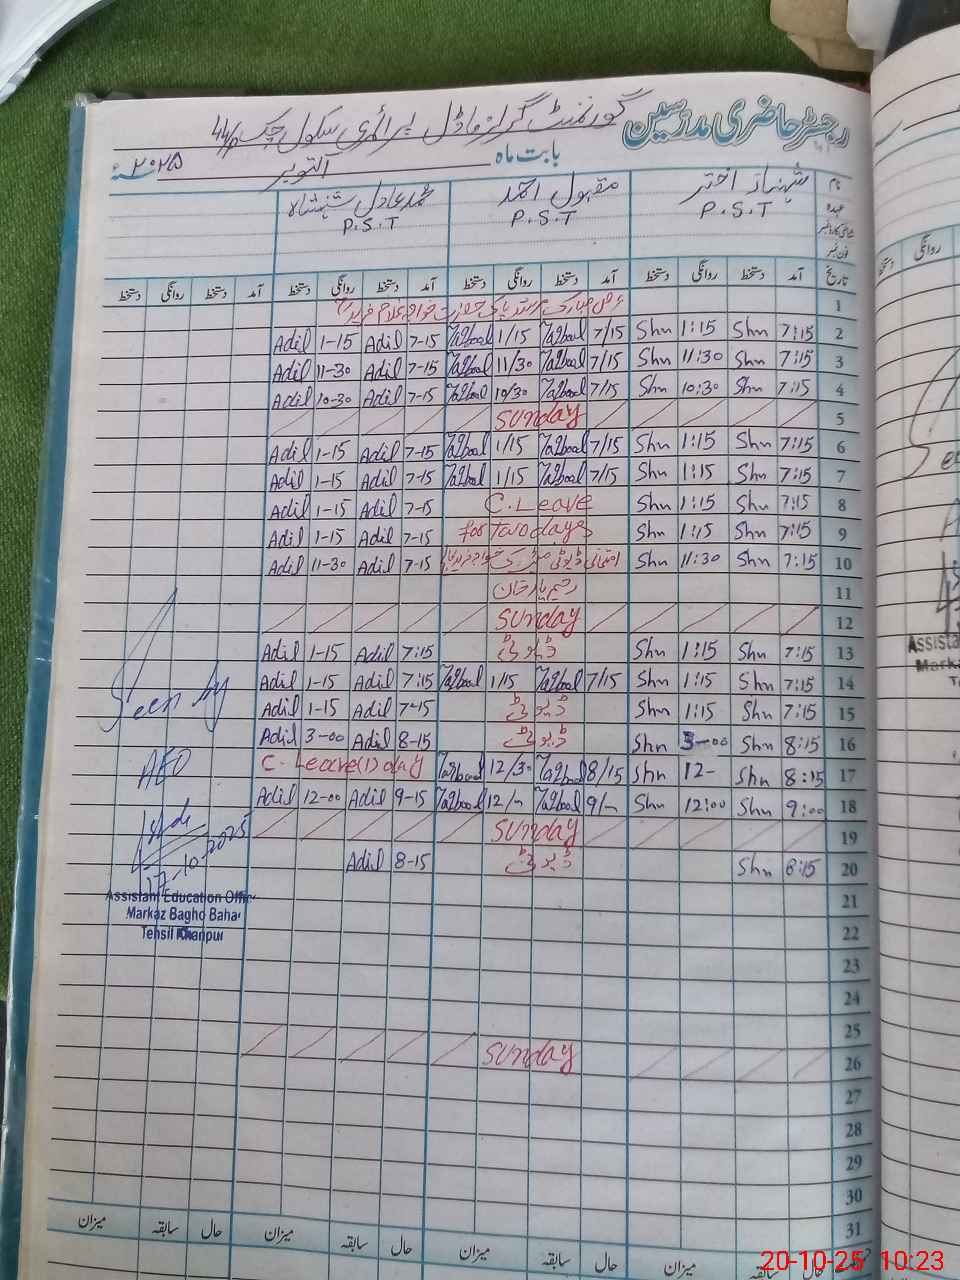 رجسٹر حاضری مدرسین گورنمنٹ گرلز ماڈل پرائمری سکول چک 44/P
بابت ماہ اکتوبر ۲۰۲۵
نام شہناز اختر مقبول احمد محمد عادل شہنشاہ
عہدہ P.S.T P.S.T P.S.T
شناختی کارڈ نمبر
فون نمبر
تاریخ آمد دستخط روانگی دستخط آمد دستخط روانگی دستخط آمد دستخط روانگی دستخط آمد دستخط روانگی دستخط
1 عرس مبارک حضرت خواجہ غلام فرید
2 7:15 Shn 1:15 Shn 7/15 Maqbool 1/15 Maqbool 7-15 Adil 1-15 Adil
3 7:15 Shn 11:30 Shn 7/15 Maqbool 11/30 Maqbool 7-15 Adil 11-30 Adil
4 7:15 Shn 10:30 Shn 7/15 Maqbool 10/30 Maqbool 7-15 Adil 10-30 Adil
5 Sunday
6 7:15 Shn 1:15 Shn 7/15 Maqbool 1/15 Maqbool 7-15 Adil 1-15 Adil
7 7:15 Shn 1:15 Shn 7/15 Maqbool 1/15 Maqbool 7-15 Adil 1-15 Adil
8 7:15 Shn 1:15 Shn C.Leave 7-15 Adil 1-15 Adil
9 7:15 Shn 1:15 Shn for Two days 7-15 Adil 1-15 Adil
10 7:15 Shn 11:30 Shn امتحانی ڈیوٹی 7-15 Adil 11-30 Adil
11 رحیم یار خان
12 Sunday
13 7:15 Shn 1:15 Shn ڈیوٹی 7:15 Adil 1-15 Adil
14 7:15 Shn 1:15 Shn 7/15 Maqbool 1/15 Maqbool 7:15 Adil 1-15 Adil
15 7:15 Shn 1:15 Shn ڈیوٹی 7-15 Adil 1-15 Adil
16 8:15 Shn 3-00 Shn ڈیوٹی 8-15 Adil 3-00 Adil
17 8:15 Shn 12- Shn 8/15 Maqbool 12/30 Maqbool C. Leave (1) day
18 9:00 Shn 12:00 Shn 9/- Maqbool 12/- Maqbool 9-15 Adil 12-00 Adil
19 Sunday
20 8:15 Shn ڈیوٹی 8-15 Adil
21
22
23
24
25
26 Sunday
27
28
29
30
31
حال سابقہ میزان حال سابقہ میزان حال سابقہ میزان حال سابقہ میزان
Seen by
AEO
17-10-2025
Assistant Education Offi
Markaz Bagho Bahar
Tehsil Khanpur
Assista
Marka
Te
روانگی
20-10-25 10:23